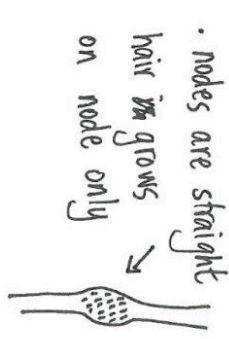 · nodes are straight
hair grows
on node only